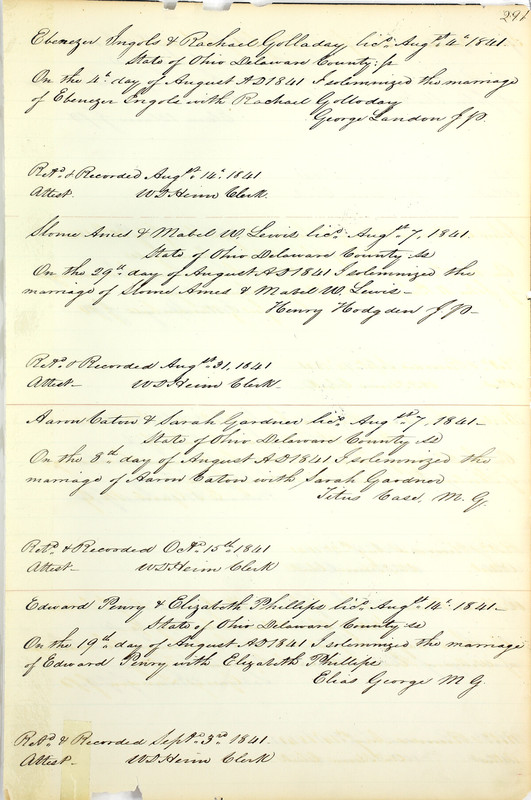 291
Ebenezer Ingols & Rachael Golladay licd. Augst. 4th 1841
State of Ohio Delaware County: ss
On the 4th day of August AD 1841 I solemnized the marriage
of Ebenezer Ingols with Rachael Golloday
George Landon J.P.
Retd. & Recorded Augst. 14th 1841
Attest W D Heim Clerk.
Slome Ames & Mabel W. Lewis licd. Augst. 7, 1841.
State of Ohio Delaware County: ss
On the 29th day of August AD 1841 I solemnized the
marriage of Slome Ames & Mabel W. Lewis
Henry Hodgden J.P.
Retd. & Recorded Augst. 31, 1841
Attest W D Heim Clerk.
Aaron Eaton & Sarah Gardner licd. Augst. 7, 1841
State of Ohio Delaware County ss
On the 8th day of August AD 1841 I solemnized the
marriage of Aaron Eaton with Sarah Gardner
Titus Case, M. G.
Retd. & Recorded Oct. 15th 1841
Attest W D Heim Clerk
Edward Penry & Elizabeth Phillips licd. Augst. 14th 1841
State of Ohio Delaware County ss
On the 19th day of August AD 1841 I solemnized the marriage
of Edward Penry with Elizabeth Phillips
Elias George M. G.
Retd. & Recorded Sept. 3rd 1841.
Attest W D Heim Clerk